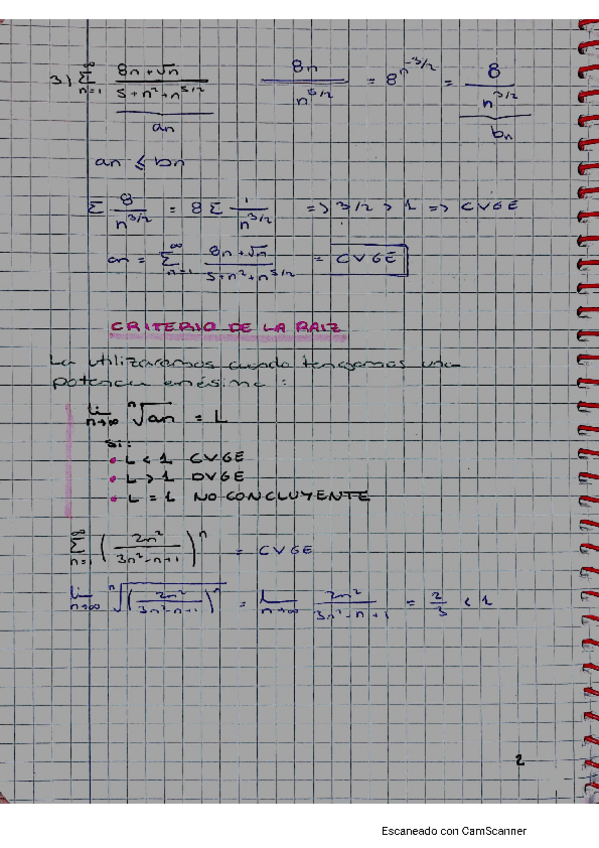 3) ∞Σn=1 (8n + √n)/(5 + n² + n^5/2)   8n/n^5/2 = 8n^-3/2 = 8/n^3/2
an   bn
an ≤ bn
Σ 8/n^3/2 = 8 Σ 1/n^3/2 => 3/2 > 1 => CVGE
an = ∞Σn=1 (8n + √n)/(5 + n² + n^5/2) = CVGE
CRITERIO DE LA RAIZ
La utilizaremos cuando tengamos una
potencia enésima :
lim n→∞ ⁿ√an = L
Si:
• L < 1 CVGE
• L > 1 DVGE
• L = 1 NO CONCLUYENTE
∞Σn=1 (2n²/(3n² - n + 1))^n = CVGE
lim n→∞ ⁿ√(2n²/(3n² - n + 1))^n = lim n→∞ 2n²/(3n² - n + 1) = 2/3 < 1
2
Escaneado con CamScanner